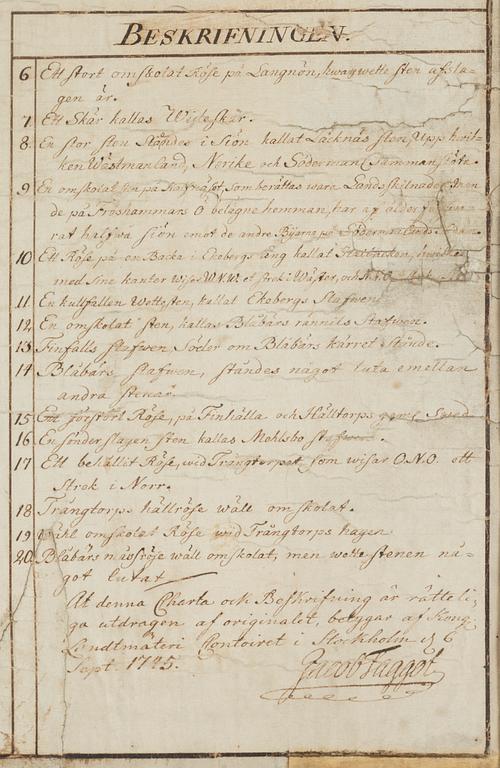 BESKRIFNINGEN.
6 Ett stort omskolat Röse på Langnön, hwarpå wette sten afsla-
gen är.
7 Ett Skär kallas Wisleskär.
8. En stor sten Ståndes i Siön kallat Läcknäs sten, Upp hwil-
ken Wästmanland, Nerike och Söderman Sammanstöta.
9 En omskolat sten på, som berättas wara Landskilnaden, men
de på Froshammars Ö belägne hemman, har af ålder
rat halfwa siön emot de andre Byarne på
10 Ett Röse på en Backa i Ekebergs äng kallat
med sine kanter wiser W.N.W. et strek i Wäster, och
11 En kullfallen Wettesten, kallat Ekebergs Stafwen
12. En omskolat sten, kallas Blåbärs rännils Stafwen.
13 Finfalls stafwen, Söder om Blåbärs kärret Stånde.
14 Blåbärs stafwen, ståndes något luta emellan
andra stenar.
15 Ett förstört Röse, på Finhälla och Hälltorps
16 En sönderslagen sten kallas Mohlsbo stafwen.
17 Ett behållit Röse, wid Trångtorpet som wisar O.N.O. ett
Strek i Norr.
18 Trångtorps hällröse wäll omskolat.
19 Wähl omskolat Röse wid Trångtorps hagen
20 Blåbärs måssröse wäll omskolat, men wettestenen nå-
got lutat
At denna Charta och Beskrifning är rätteli-
ga utdragen af originalet, betygar af Kongl
Landtmäteri Contoiret i Stockholm d 6
Sept. 1745.
Jacob Faggot